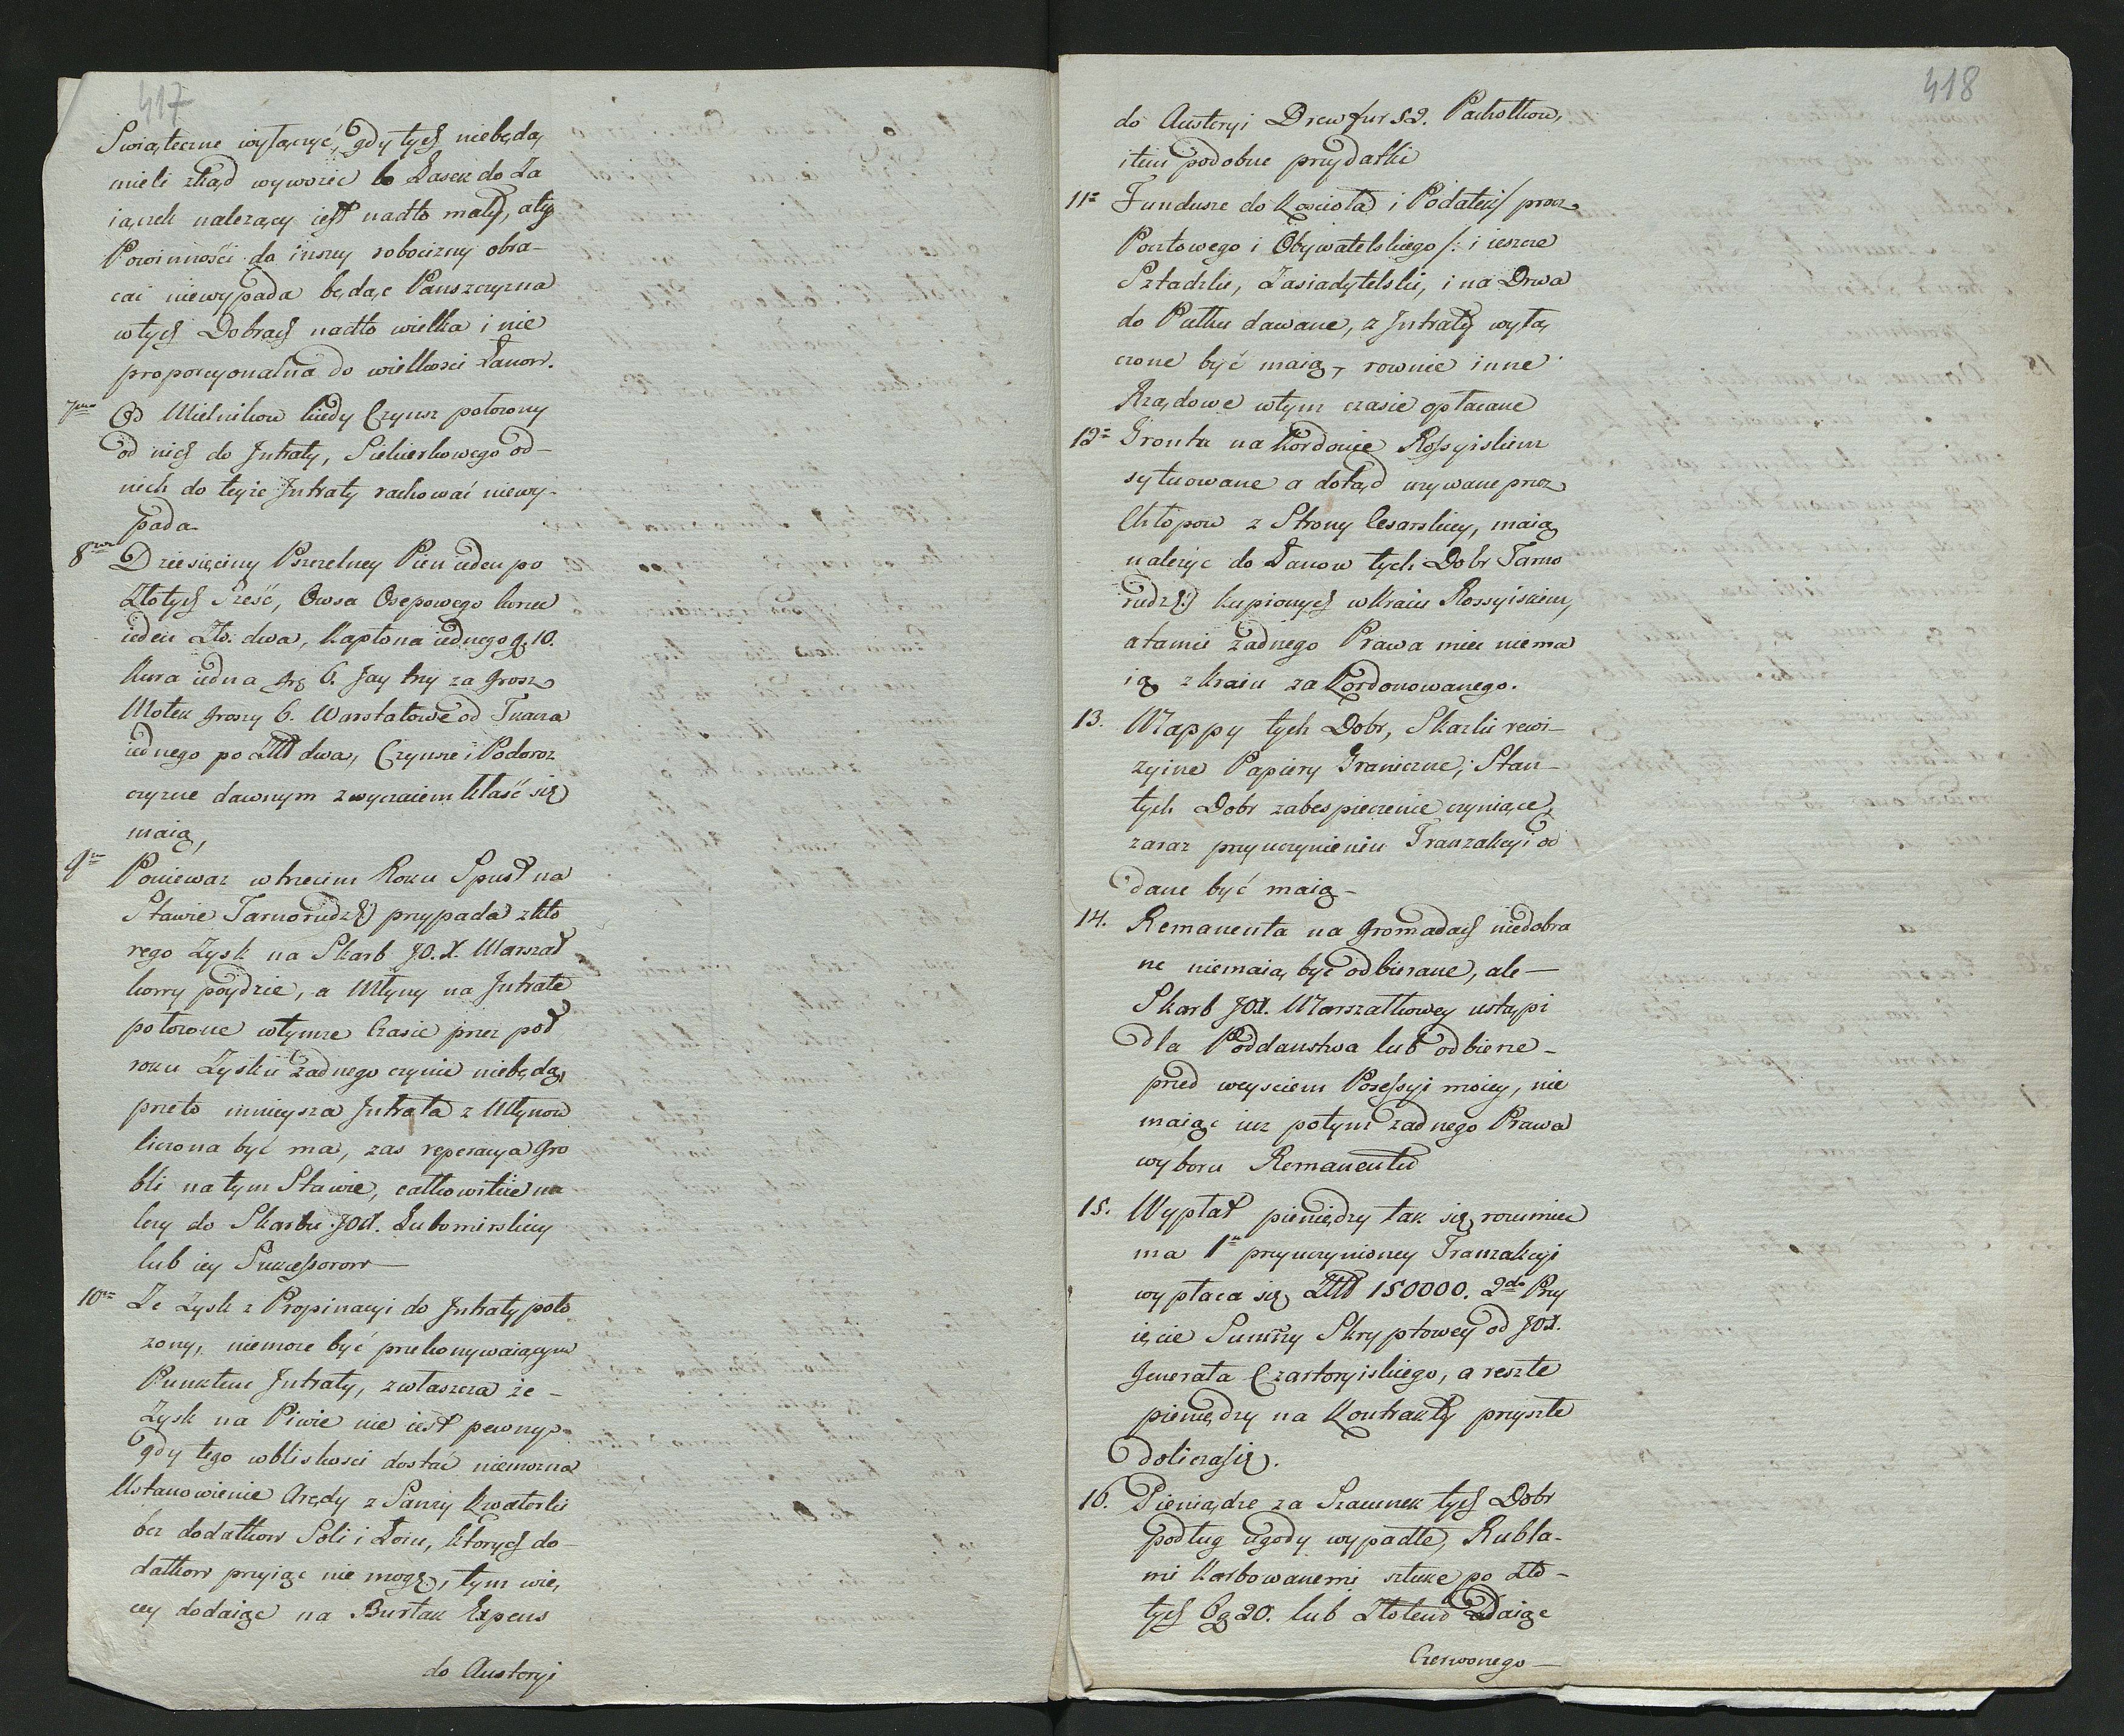 417
Swiąteczne wyłączyć, gdy tych niebędą
mieli zkąd wywozic bo Lasek do Za
iączek nalezący iest nadto mały, aty
Powinnośći do inszey robocizny obra-
cai niewypada będąc Panszczyzna
w tych Dobrach nadto wielka i nie
proporcyonalna do wielkosci Łanow.
7mo Od Mielnikow kiedy Czynsz połozony
od nich do Intraty, Siekierkowego od-
nich do teyze Intraty rachować niewy-
pada
8vo Dziesięciny Pszczelney Pien ieden po
Złotych Sześć, Owsa Osepowego korzec
ieden Zło. dwa, Kapłona iednego g. 10.
Kura iedna gr 6. Jay trzy za Grosz
Motek groszy 6. Warstatowe od Tkacza
iednego po Złł dwa, Czynsze i Podoroz
czyzne dawnym zwyczaiem kłaść się
maią,
9no Poniewaz w trzecim Roku Spust na
Stawie Tarnorudzkii przypada z kto
rego Zysk na Skarb JO. X. Marszał
kowy poydzie, a Młyny na Intrate
połozone w tymze Czasie przez poł
roku Zysku zadnego czynic niebędą,
przeto mnieysza Intrata z Młynow
liczona być ma, zas reperacya Gro
bli na tym Stawie, całkowicie na
lezy do Skarbu JOX. Lubomirskiey
lub iey Sukcessorow —
10mo Ze Zysk z Propinacyi do Intraty poło
zony, niemoze być przekonywaiącym
Punktem Intraty, zwłaszcza że -
Zysk na Piwie nie iest pewny -
gdy tego w bliskosci dostać niemozna
Ustanowienie Arędy z Samey Kwatorki
bez dodatkow Soli i Łoiu, ktorych do-
datkow przyiąc nie mogę, tym wię,
cey dodaiąc na Burłak Expens
do Austeryi
418
do Austeryi Drew fur 52. Pachołkow,
item podobne przydatki
11o Fundusze do Kościoła i Podatek/ procz
Pocztowego i Obywatelskiego /: i ieszcze
Sztadzkie, Zasiadytelskie, i na Drwa
do Pułku dawane, z Intraty wyłą,
czone być maią, rownie inne
Rządowe w tym czasie opłacane
12o Gronta na Kordonie Rossyiskim
sytuowane a dotąd uzywane przez
Chłopow z Strony Cesarskiey, maią
nalezyc do Łanow tych Dobr Tarno
rudzkii kupionych w Kraiu Rossyiskim,
a tamci żadnego Prawa miec niema
ią z Kraiu za Kordonowanego.
13. Mappy tych Dobr, Skazki rewi-
zyine Papiery Graniczne, Stan -
tych Dobr zabespieczenie czyniące,
zaraz przy uczynieniu Tranzakcyi od
dane być maią -
14. Remanenta na Gromadach niedobra
ne niemaią być odbierane, ale —
Skarb JOX. Marszałkowey ustąpi
dla Poddanstwa lub odbierze -
przed weysciem Possessyi moiey, nie
maiąc iuz potym zadnego Prawa
wyboru Remanentu
15. Wypłat pieniędzy tak się rozumiec
ma 1o przy uczynioney Tranzakcyi
wypłaca się Złł 150000. 2do Przy
ięcie Summy Skryptowey od JOX.
Generała Czartoryiskiego, a reszte
pieniędzy na Kontrakty przyszłe
dolicza się.
16. Pieniądze za Szacunek tych Dobr
podług ugody wypadłe, Rubla-
mi Karbowanemi sztuke po Zło -
tych 6 g 20. lub Złotem rdaiąc
Czerwonego —